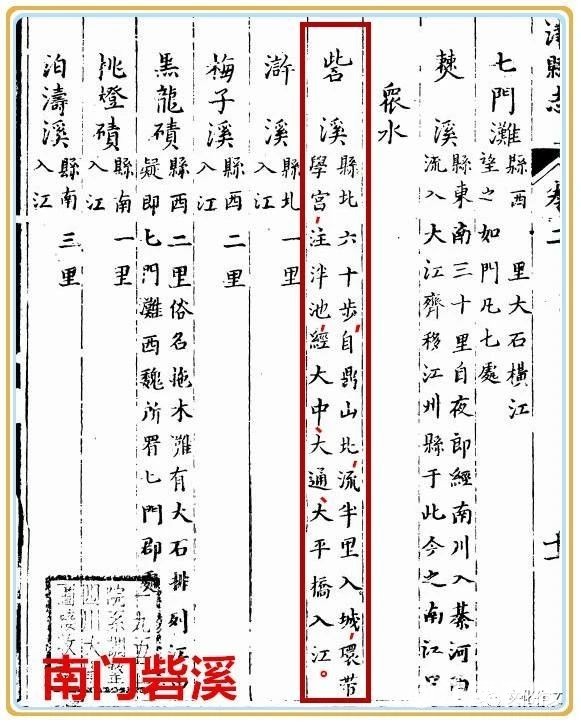 津縣志
卷二
七門灘
縣西 里大石橫江
望之如門凡七處
僰溪
縣東南三十里自夜郎經南川入綦河
流入大江齊移江州縣于此今之南江口
眾水
砦溪
縣北六十步,自鼎山北,流半里入城,環帶
學宮,注泮池,經大中、大通、大平橋入江。
滸溪
縣北一里
入江
梅子溪
縣西二里
入江
黑龍磧
縣西二里俗名拖木灘有大石排列江
疑即七門灘西魏所署七門郡
挑燈磧
縣南一里
入江
泊濤溪
縣南三里
入江
一九五
院系調整
四川大
南门砦溪